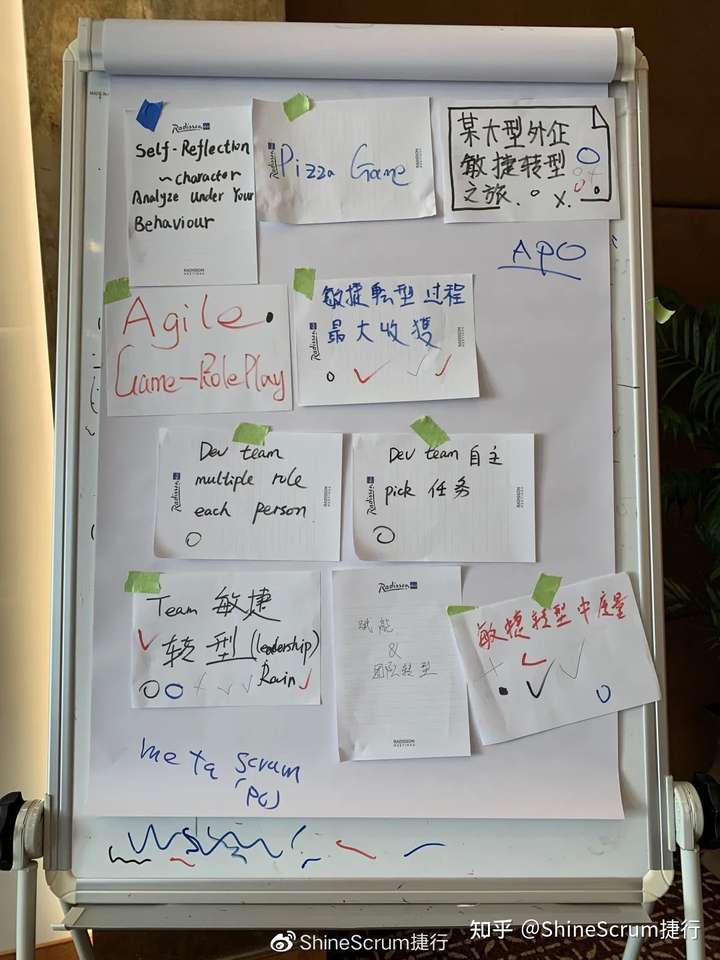 Radisson
Self-Reflection
~character
Analyze under Your
Behaviour
RADISSON
MEETINGS
Radisson
Pizza Game
RADISSON
MEETINGS
某大型外企
敏捷转型
之旅.
APO
Agile
Game-RolePlay
Radisson
敏捷転型过程
最大收獲
RADISSON
MEETINGS
Radisson
Dev team
multiple role
each person
RADISSON
MEETINGS
Radisson
Dev team 自主
pick 任务
RADISSON
MEETINGS
Team 敏捷
转型 (leadership)
Rain
Radisson
赋能
&
团队转型
RADISSON
MEETINGS
敏捷转型中度量
meta scrum
(PO)
知乎 @ShineScrum捷行
ShineScrum捷行